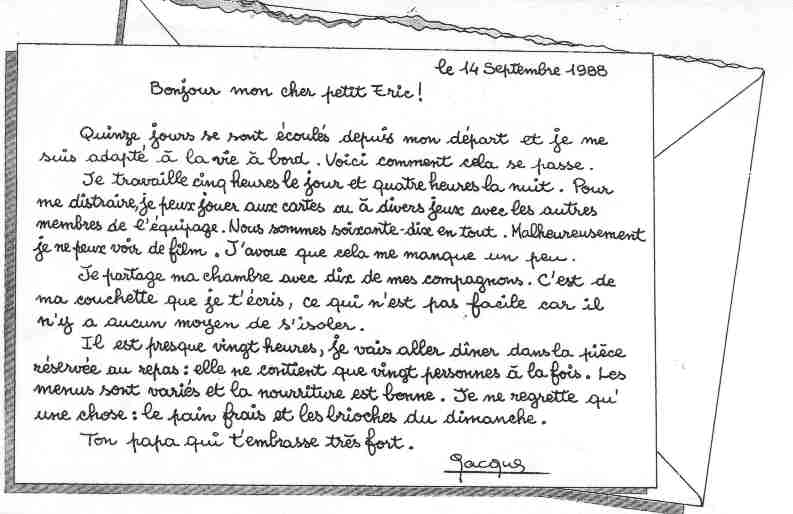 le 14 Septembre 1988
Bonjour mon cher petit Eric !
Quinze jours se sont écoulés depuis mon départ et je me
suis adapté à la vie à bord. Voici comment cela se passe.
Je travaille cinq heures le jour et quatre heures la nuit. Pour
me distraire, je peux jouer aux cartes ou à divers jeux avec les autres
membres de l'équipage. Nous sommes soixante-dix en tout. Malheureusement
je ne peux voir de film. J'avoue que cela me manque un peu.
Je partage ma chambre avec dix de mes compagnons. C'est de
ma couchette que je t'écris, ce qui n'est pas facile car il
n'y a aucun moyen de s'isoler.
Il est presque vingt heures, je vais aller dîner dans la pièce
réservée au repas : elle ne contient que vingt personnes à la fois. Les
menus sont variés et la nourriture est bonne. Je ne regrette qu'
une chose : le pain frais et les brioches du dimanche.
Ton papa qui t'embrasse très fort.
Jacques